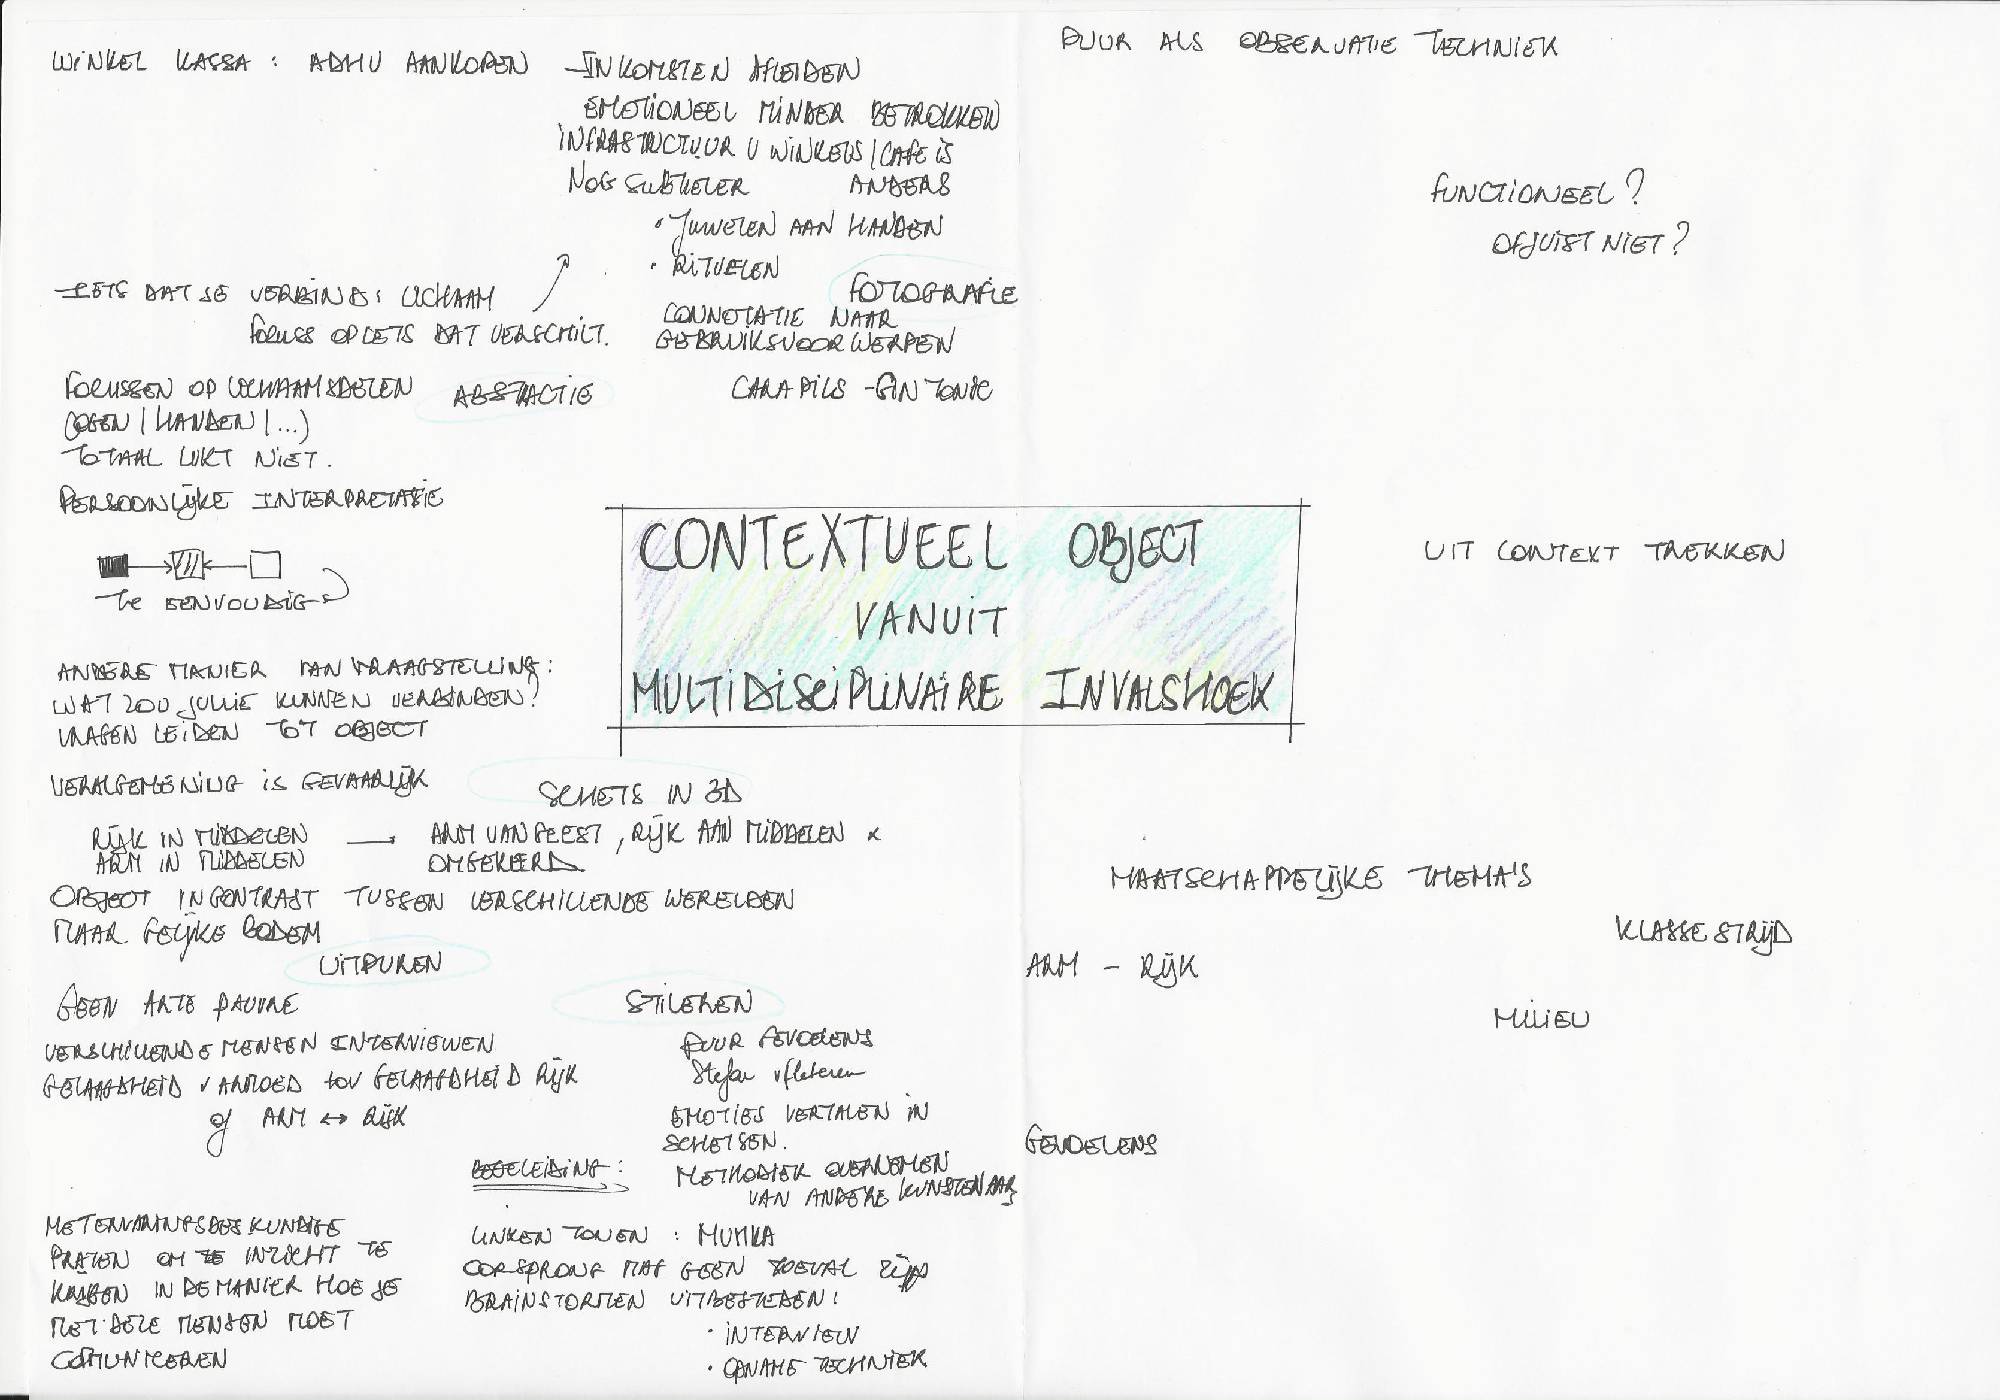 WINKEL KASSA : ADHV AANKOPEN
- INKOMSTEN AFLEIDEN
EMOTIONEEL MINDER BETROKKEN
INFRASTRUCTUUR V WINKELS / CAFE IS
NOG SUBTIELER ANDERS
• JUWELEN AAN HANDEN
• RITUELEN
FOTOGRAFIE
CONNOTATIE NAAR
GEBRUIKSVOORWERPEN
CARA PILS - GIN TONIC
- IETS DAT SE VERBIND : LICHAAM
FOCUSS OP IETS DAT VERSCHILT.
FOCUSSEN OP LICHAAMSDELEN
(OGEN / HANDEN / ...)
TOTAAL LUKT NIET.
ABSTRACTIE
PERSOONLIJKE INTERPRETATIE
TE EENVOUDIG
ANDERE MANIER VAN VRAAGSTELLING :
WAT ZOU JULLIE KUNNEN VERBINDEN?
VRAGEN LEIDEN TOT OBJECT
VERALGEMENING IS GEVAARLIJK
SCHETS IN 3D
RIJK IN MIDDELEN → ARM VAN GEEST, RIJK AAN MIDDELEN &
ARM IN MIDDELEN OMGEKEERD
OBJECT IN CONTRAST TUSSEN VERSCHILLENDE WERELDEN
MAAR GELIJKE BODEM
UITPUREN
GEEN ARTE PAUVRE
STILEREN
VERSCHILLENDE MENSEN INTERVIEWEN
GELAAGDHEID V ARMOED TOV GELAAGDHEID RIJK
of ARM ↔ RIJK
PUUR GEVOELENS
Stefan vfleteren
EMOTIES VERTALEN IN
SCHETSEN.
BEGELEIDING :
METHODIEK OVERNEMEN
VAN ANDERE KUNSTENAARS
MET ERVARINGSDESKUNDIGE
PRATEN OM TE INZICHT TE
KRIJGEN IN DE MANIER HOE JE
MET DEZE MENSEN MOET
COMUNICEREN
LINKEN TONEN : MUHKA
OORSPRONG MAG GEEN TOEVAL ZIJN
BRAINSTORMEN UITBESTEDEN :
• INTERVIEW
• OPNAME TECHNIEK
CONTEXTUEEL OBJECT
VANUIT
MULTIDISCIPLINAIRE INVALSHOEK
PUUR ALS OBSERVATIE TECHNIEK
FUNCTIONEEL?
OF JUIST NIET?
UIT CONTEXT TREKKEN
MAATSCHAPPELIJKE THEMA'S
KLASSE STRIJD
ARM - RIJK
MILIEU
GEVOELENS